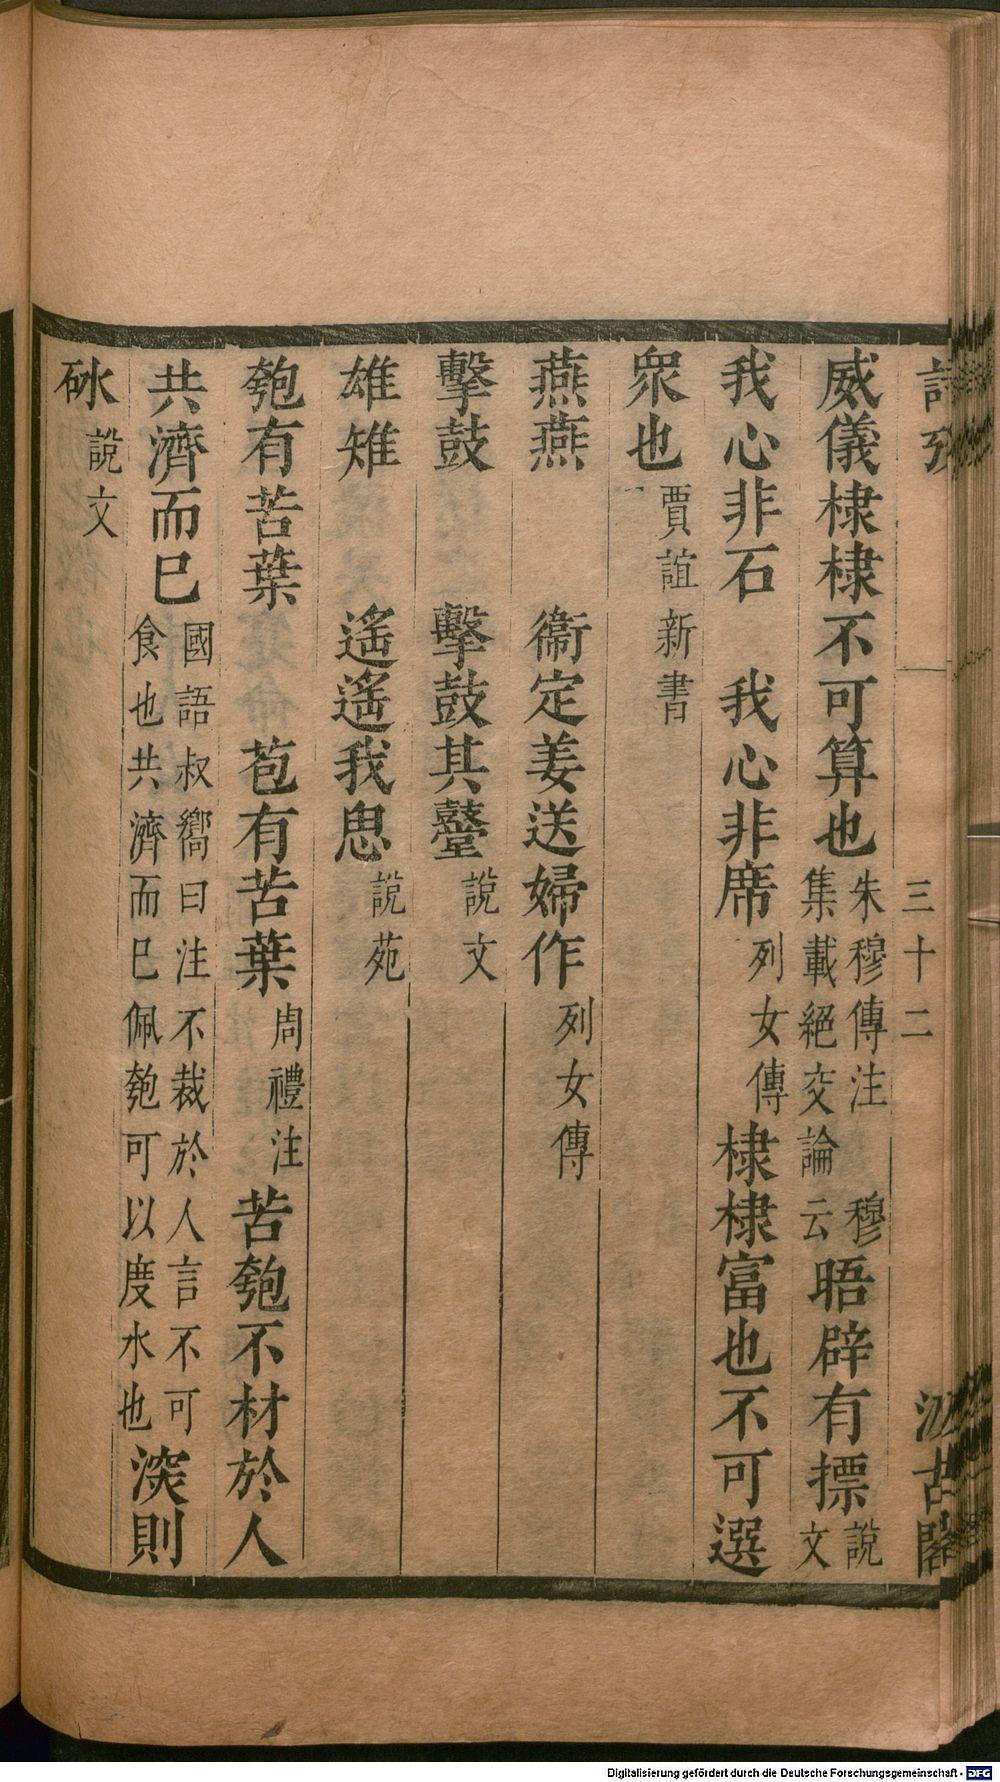 詩攷
三十二
汲古閣
威儀棣棣不可算也朱穆傳注穆集載絕交論云晤辟有摽說文
我心非石　我心非席列女傳棣棣富也不可選
眾也賈誼新書
燕燕　衞定姜送婦作列女傳
擊鼓　擊鼓其鼞說文
雄雉　遙遙我思說苑
匏有苦葉　苞有苦葉周禮注苦匏不材於人
共濟而巳國語叔嚮曰注不裁於人言不可食也共濟而巳佩匏可以度水也深則
砅說文
Digitalisierung gefördert durch die Deutsche Forschungsgemeinschaft - DFG